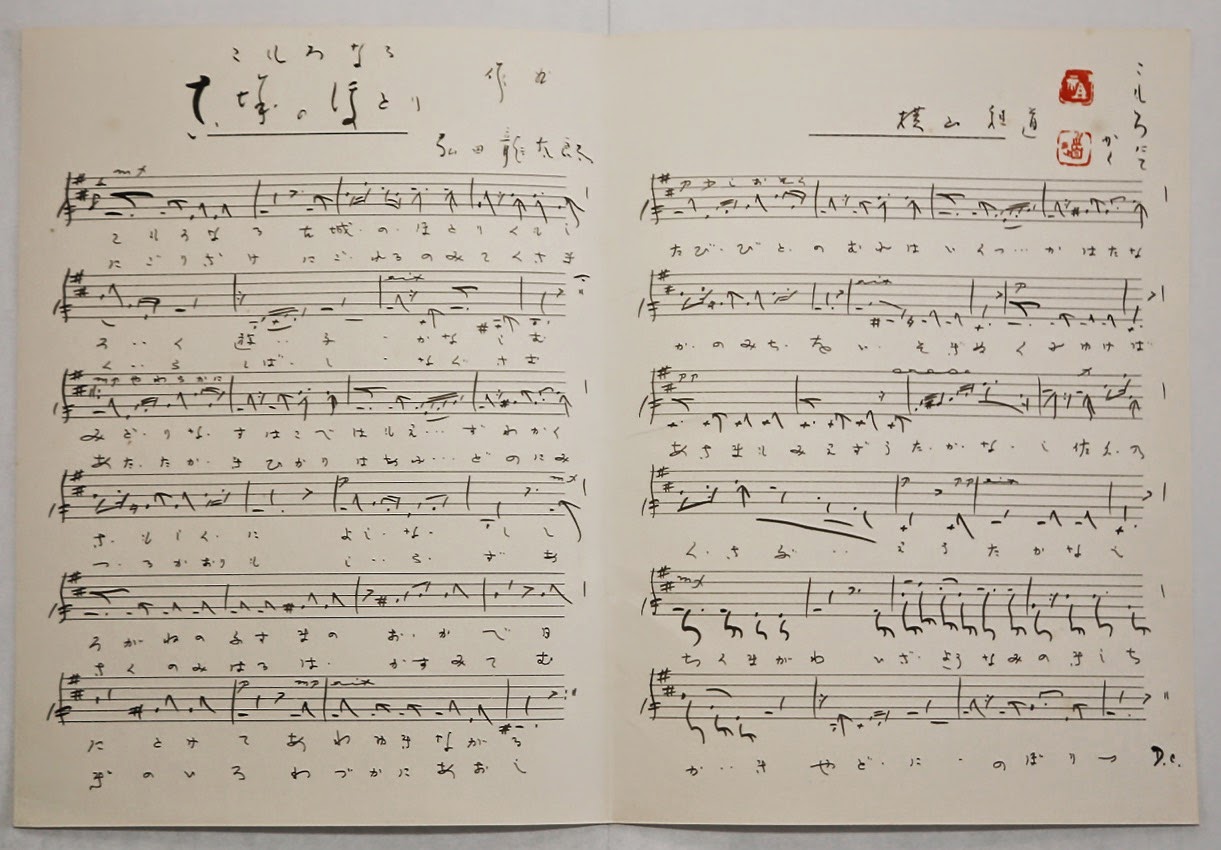 こもろなる
古城のほとり
作曲
弘田龍太郎
mf
こもろなる 古城・の・ほとりくもし
にごりざけ にご・れるのみてくさま
ろ・・く 遊・・子・かなしむ
く・・ら しば・し・なぐさむ
mp やわらかに
みど・りな・すはこべはもえ・・・ずわかく
あたたか・きひかりはあれ・・・どのにみ
p mf
さ・もしく・に よし・な・しし
つ・ろかおりも し・・らずあ
ろがねのふすまの おかべ日
さくのみはるは・ かすみてむ
p mp
にとけて あわゆきながる
ぎのいろ わづかにあおし
横山祖道
こもろにて
かく
たび・びと・のむれは いくつ・・・かはたな
p
か・のみち・を い・そぎぬ くれゆけば
pp
あさまもみえずうたかなし佐久の
p pp
く・さぶ・・・えうたかなし
mf
ちくまがわ いざ・ようなみのきしち
か・・き やど・に・のぼりつ D.C.